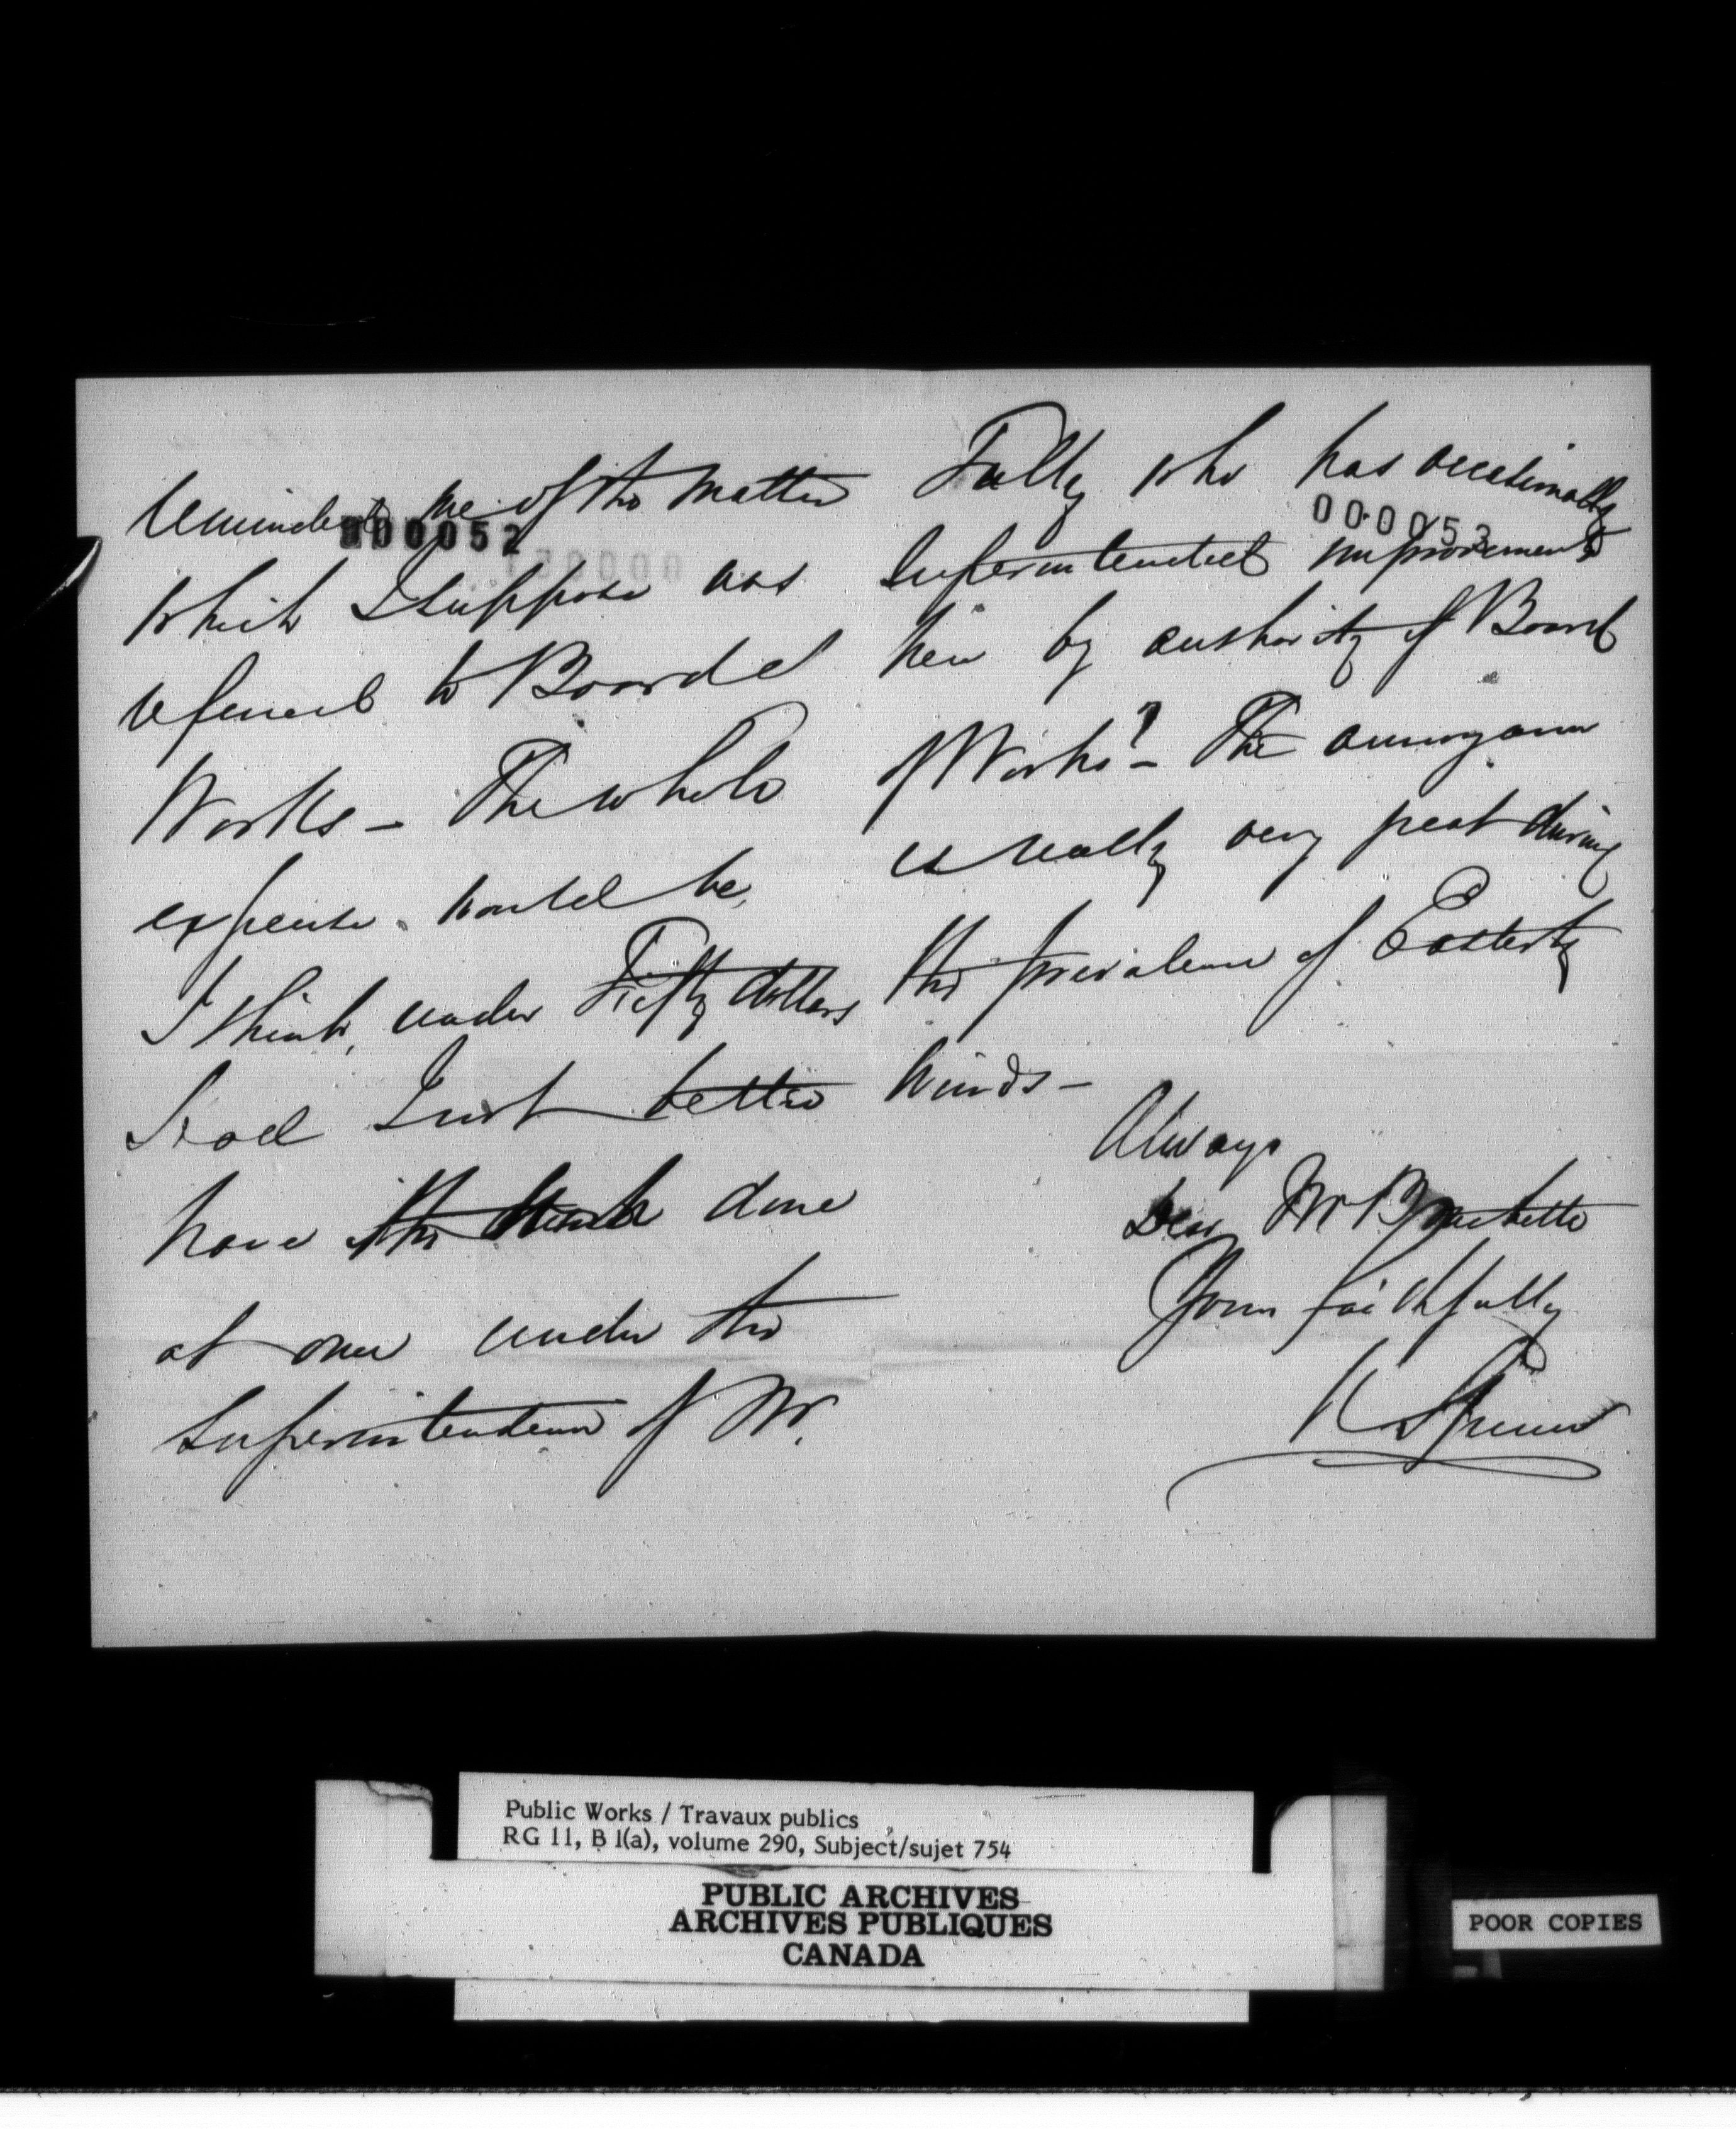 reminded me of the matter
000052
which I suppose was
referred to Board of
Works – The whole
expense would be,
I think, under Fifty dollars
Had I not better
have the done
at once under the
Superintendence of Mr.
Tully who has occasionally
000053
Superintended improvements
here by authority of Board
of Works? – The annoyance
is really very great during
the prevalence of Easterly
winds –
Always
Dear Mr Bouchette
Yours faithfully
R Spence
Public Works / Travaux publics
RG 11, B 1(a), volume 290, Subject/sujet 754
PUBLIC ARCHIVES
ARCHIVES PUBLIQUES
CANADA
POOR COPIES